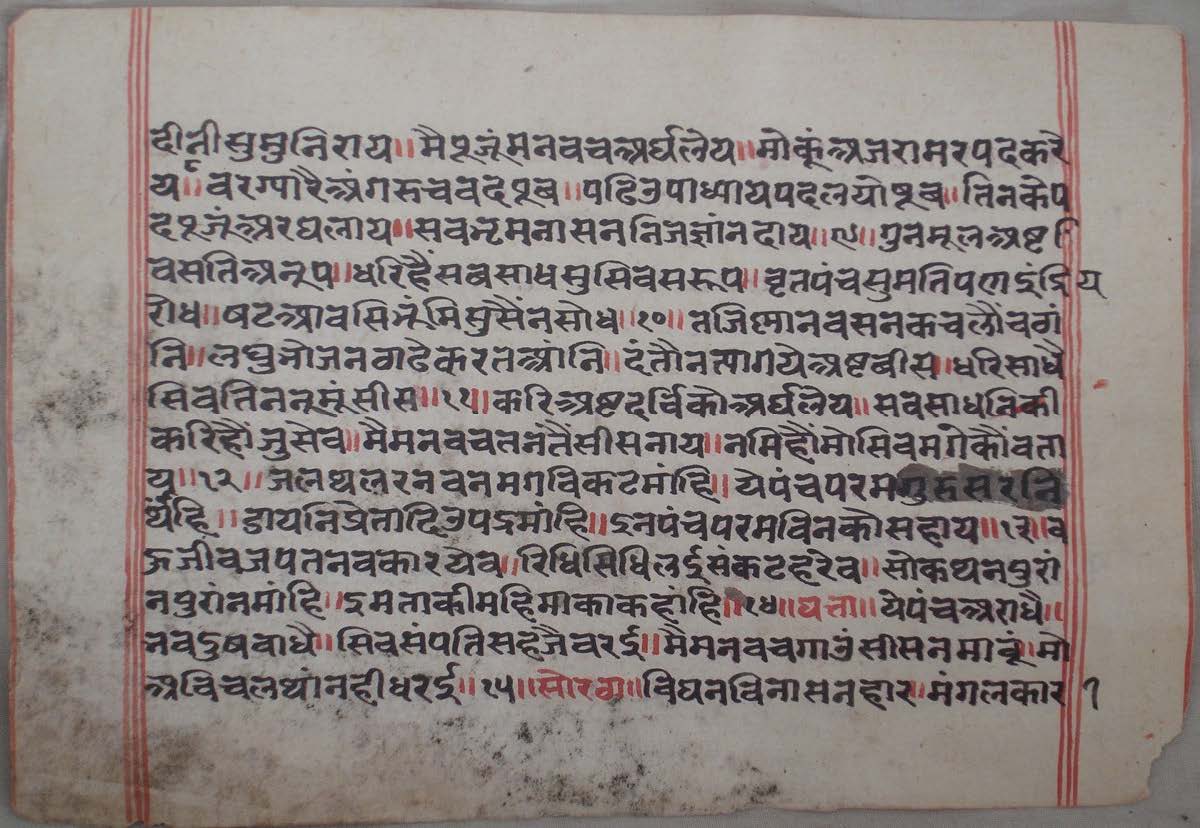 दीनीसुमुनिराय॥मैपूजूंमनवचअर्घलेय॥मोकूंअजरामरपदकरै
य॥वरग्यारैअंगरुचवदपूव॥पढिउपाध्यायपदलयोषूव॥तिनकेप
दपूजूंअरघलाय॥सवभ्रमनासननिजज्ञांनदाय॥९॥गुनमूलअष्ट
वसतिअनूप॥धरिहैंसवसाधसुसिवसरूप॥वृतपंचसुमतिपणइंद्रिय
रोध॥षटआवसिभूंमिसुसैंनसोध॥१०॥तजिण्हानवसनकचलौंचगं
नि॥लघुभोजनवाढेकरतआंनि॥दंतौनत्यागयेअष्टवीस॥धरिसाधै
सिवतिननमूंसीस॥११॥करिअष्टदर्विकौअर्घलेय॥सवसाधनिकी
करिहौंजुसेव॥मैमनवचतनतैंसीसनाय॥नमिहौंमोसिवमगकौंवता
य॥१२॥जलथलरनवनमगविकटमांहि॥येपंचपरमगुरुसरनि
थंहि॥डायनिप्रेतादिउपद्रमांहि॥इनपंचपरमविनकोसहाय॥१३॥व
ऊजीवजपतनवकारयेव॥रिधिसिधिलईसंकटहरेव॥सोकथनपुरां
नपुरांनमांहि॥इमताकीमहिमाकाकहांहि॥१४॥घत्ता॥येपंचअराधै॥
नवदुषवाधै॥सिवसंपतिसहजैवरई॥मैमनवचगाउंसीसनमावूं॥मो
अविचलथांनहीधरई॥१५॥सोरठा॥विघनविनासनहार॥मंगलकार